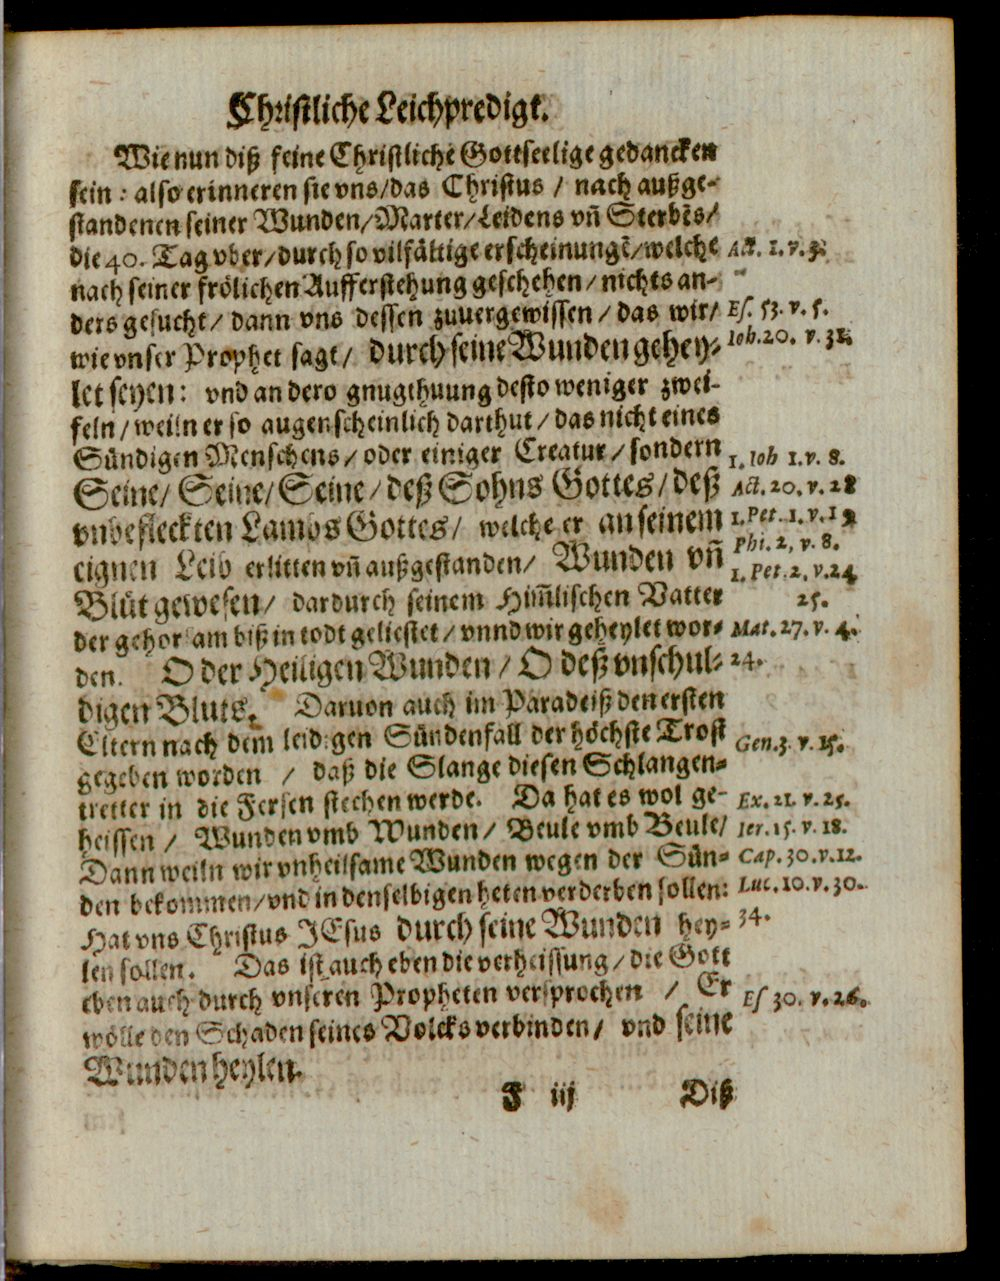 Christliche Leichpredigt.
Wie nun diß seine Christliche Gottseelige gedancken
sein : also erinneren sie vns/das Christus / nach außge-
standenen seiner Wunden/Marter/Leidens vñ Sterbẽs/
die 40. Tag vber/durch so vilfältige erscheinungẽ/welche Act. 1. v. 3.
nach seiner frölichen Aufferstehung geschehen/nichts an-
ders gesucht/ dann vns dessen zuuergewissen/das wir/ Es. 53. v. 5.
wie vnser Prophet sagt/ durch seine Wunden gehey- Ioh.20. v. 31.
let seyen: vnd an dero gnugthuung desto weniger zwei-
feln/weiln er so augenscheinlich darthut/das nicht eines
Sündigen Menschens/oder einiger Creatur/sondern 1. Ioh 1. v. 8.
Seine/Seine/Seine/deß Sohns Gottes/deß Act. 20. v. 28
vnbefleckten Lambs Gottes/ welche er an seinem 1. Pet. 1. v. 19
eignen Leib erlitten vñ außgestanden/ Wunden vñ Phi. 2, v. 8.
1. Pet. 2, v.24
Blůt gewesen/ dardurch seinem Him̃lischen Vatter 25.
der gehorsam biß in todt geliestet/vnnd wir geheylet wor- Mat. 27. v. 4.
den. O der Heiligen Wunden/O deß vnschul- 24.
digen Bluts. Daruon auch im Paradeiß den ersten
Eltern nach dem leidigen Sündenfall der höchste Trost Gen.3. v. 15.
gegeben worden / daß die Slange diesen Schlangen-
tretter in die Fersen stechen werde. Da hat es wol ge- Ex. 21. v. 25.
heissen / Wunden vmb Wunden/ Beule vmb Beule/ Ier. 15. v. 18.
Dann weiln wir vnheilsame Wunden wegen der Sün- Cap. 30. v. 12.
den bekommen/vnd in denselbigen heten verderben sollen: Luc. 10. v. 30.
Hat vns Christus JEsus durch seine Wunden hey- 34.
len sollen. Das ist auch eben die verheissung/die Gott
eben auch durch vnseren Propheten versprochen / Er Es 30. v. 26.
wölle den Schaden seines Volcks verbinden/ vnd seine
Wunden heylen.
F iij Diß